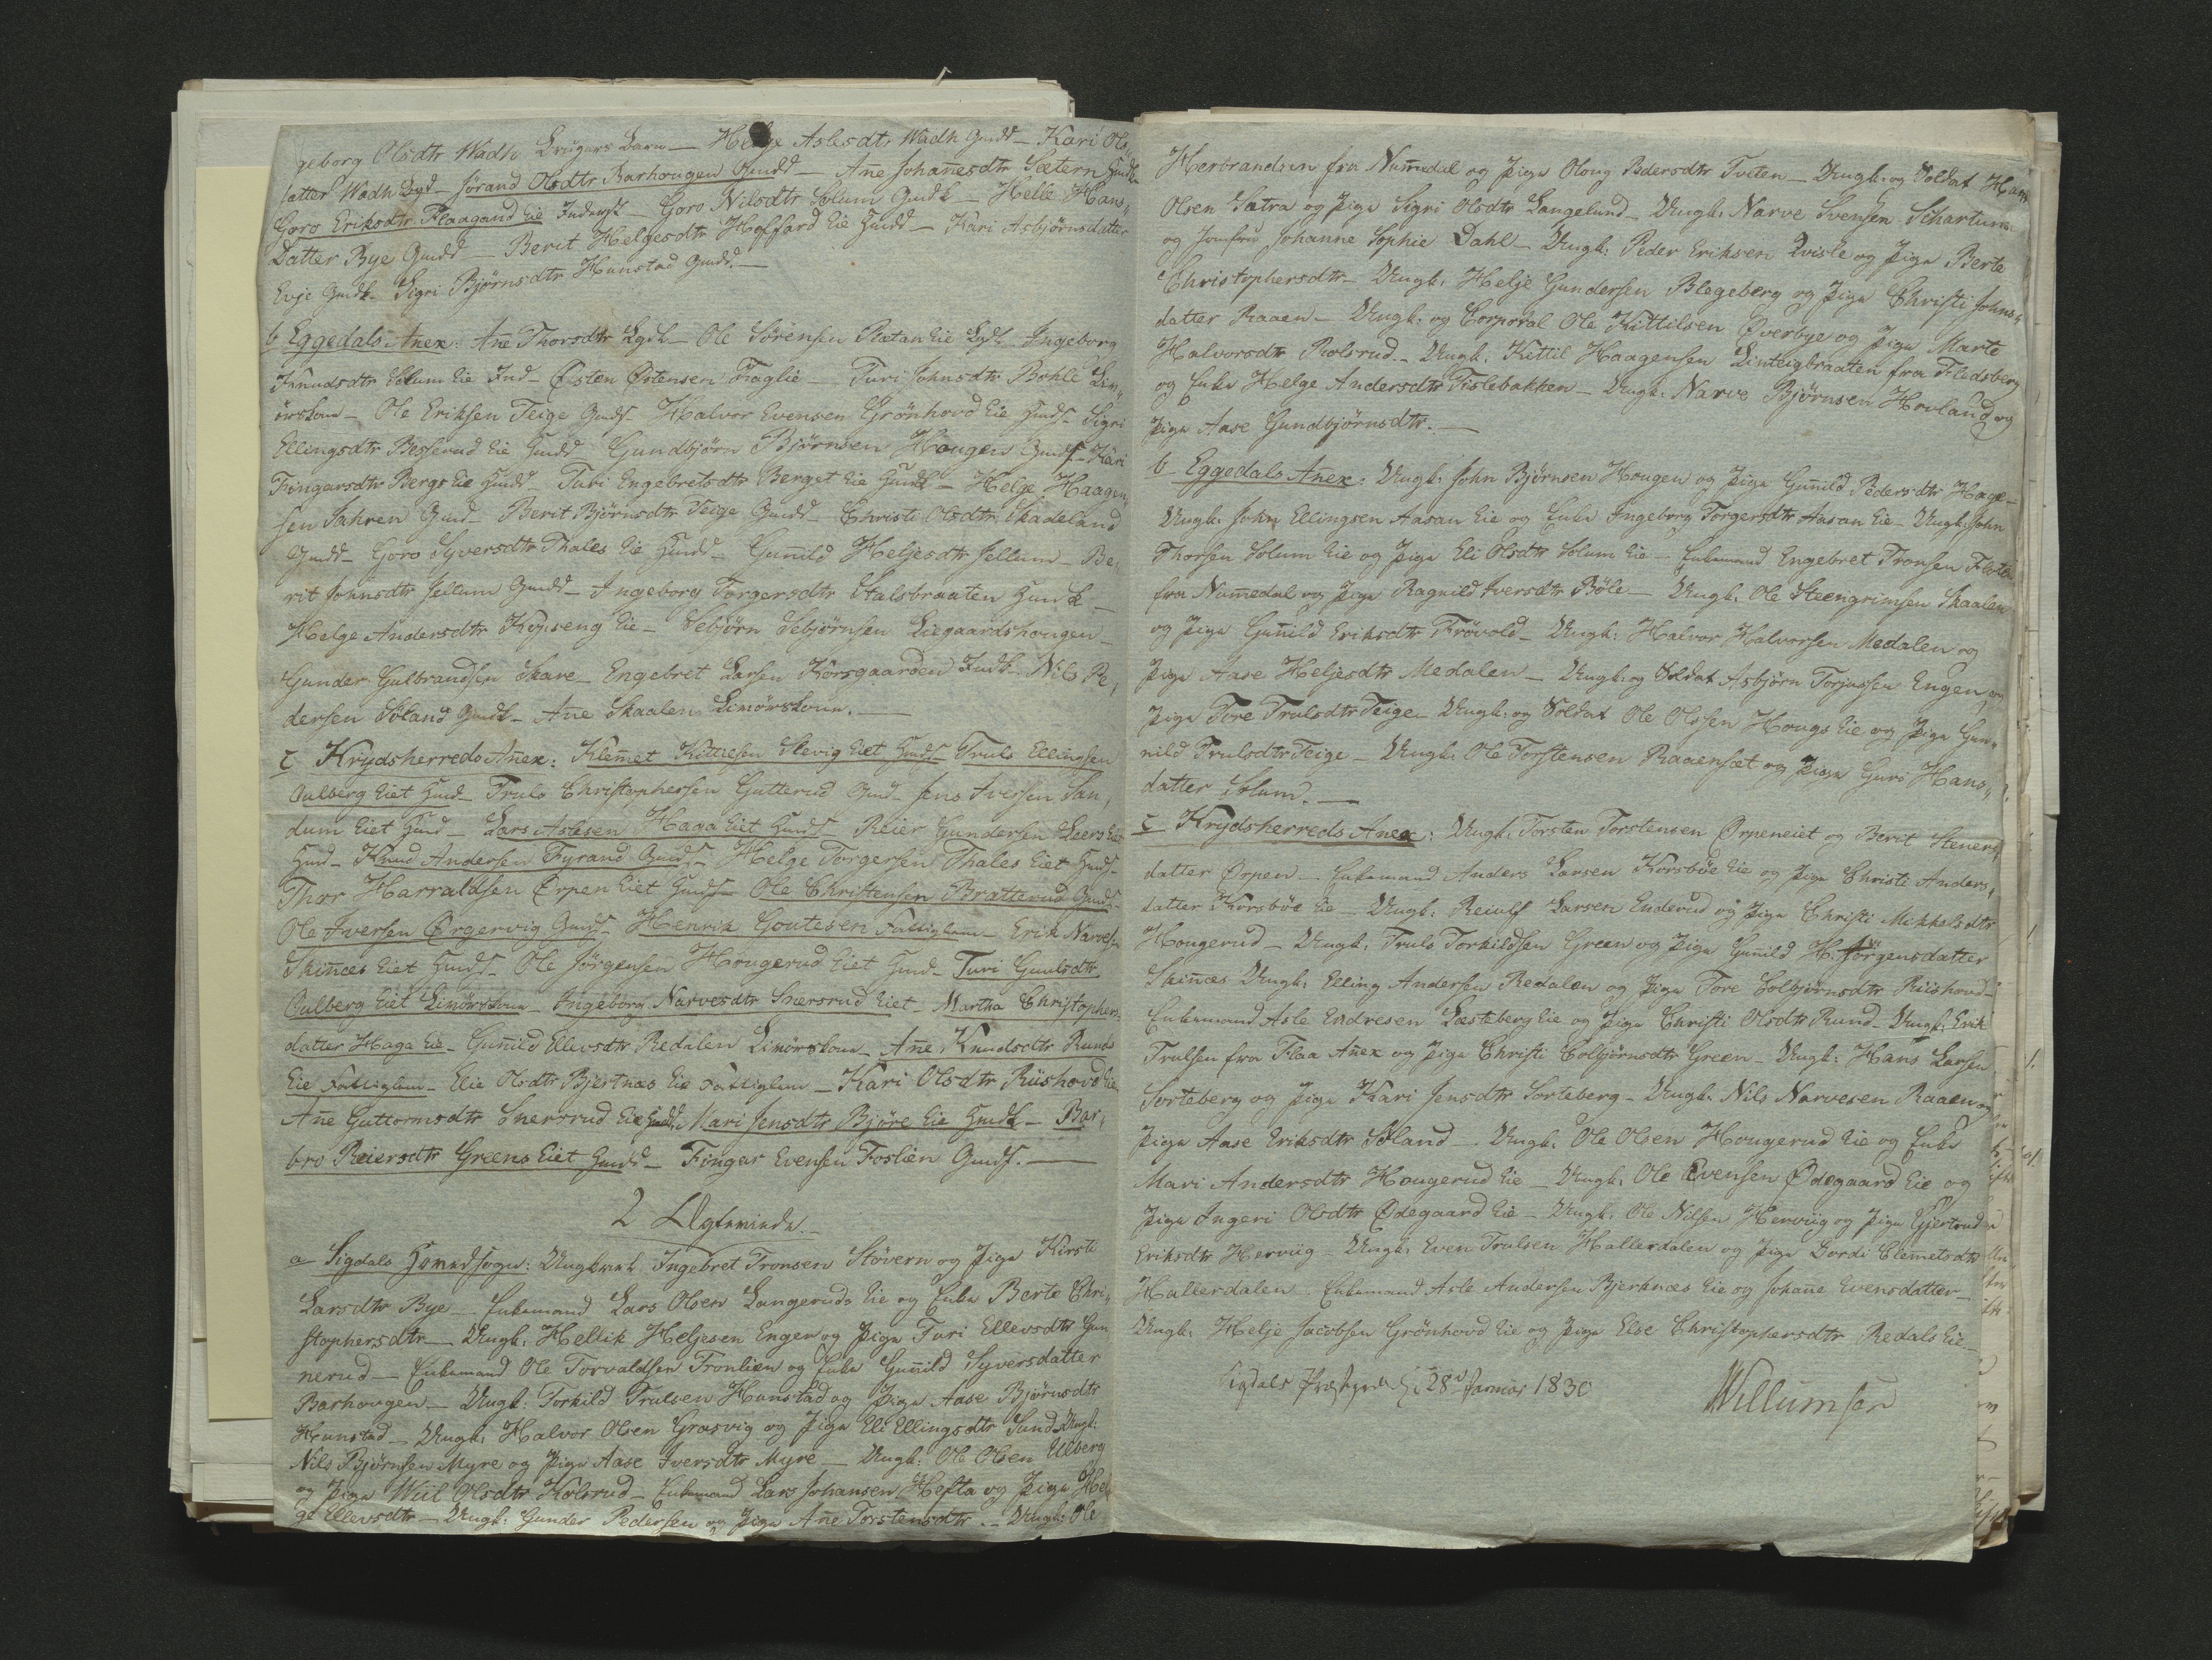 geborg Olsdtr Wadh Brugers Barn — Helge Aslesdtr Wadh Gmdd — Kari Ols„
datter Wadh Lgd — Jørand Olsdtr Barhougen Gmdd — Ane Johanesdtr Sætern Gmdk
Goro Eriksdtr Flaagand Eie Inderst — Goro Nilsdtr Solum Gmdk — Helle Hans„
Datter Bye Gmdd — Berit Helgesdtr Hoffard Eie Hmdd — Kari Asbjørnsdatter
Evje Gmdk Sigri Bjørnsdtr Hunstad Gmdd. —
b Eggedals Anex: Ane Thorsdtr Lgdk — Ole Sørensen Plætan Eie Lgdk — Ingeborg
Knudsdtr Solum Eie Ind — Østen Østensen Fraglie — Turi Johnsdtr Bohle Lem„
ørskone — Ole Eriksen Teige Gmds. Halvor Evensen Grønhovd Eie Hmds — Sigri
Ellingsdtr Besserud Eie Hmdd — Gundbjørn Bjørnsen Hougen Gmds — Kari
Fingarsdtr Bergs Eie Hmdd — Turi Engebretsdtr Berget Eie Hmdk — Helge Haagen„
sen Jahren Gmd — Berit Bjørnsdtr Teige Gmdd — Christi Olsdtr Skadeland
Gmdd — Goro Syversdtr Thales Eie Hmdd — Gunild Heljesdtr Jellum — Be„
rit Johnsdtr Jellum Gmdd — Ingeborg Torgersdtr Stalsbraaten Hmdk —
Helge Andersdtr Eie — Sebjørn Sebjørnsen Liegaardshougen —
Gunder Gulbrandsen Skare — Engebret Larsen Korsgaarden Indk — Nils Pe„
dersen Søland Gmdk — Ane Skaalen Lemørskone. —
c Krydsherreds Anex: Klemet Kittelsen Skevig Eiet Hmds — Truls Ellingsen
Aulberg Eiet Hmd — Truls Christophersen Gutterud Gmd — Jens Iversen San„
dum Eiet Hmd — Lars Aslesen Haga Eiet Hmds — Reier Gundersen Leers Eiet
Hmd — Knud Andersen Fyrand Gmds — Helge Torgersen Thales Eiet Hmds —
Thor Harraldsen Ørpen Eiet Hmds — Ole Christensen Bratterud Gmds —
Ole Iversen Ørgervig Gmds — Henrik Goutesen Fattiglem — Erik Narvesen
Skinæs Eiet Hmds — Ole Jørgensen Hougerud Eiet Hmd — Turi Guulsdtr
Aulberg Eiet Lemørskone — Ingeborg Narvesdtr Snersrud Eiet — Martha Christophers„
datter Haga Eie — Gunild Elevsdtr Redalen Lemørskone — Ane Knudsdtr Runds
Eie Fattiglem — Elie Olsdtr Bjertnæs Eie Fattiglem — Kari Olsdtr Riishovd Eie
Ane Guttormsdtr Snersrud Eie Hmdd. Mari Jensdtr Bjøre Eie Hmdk — Bar„
bro Reiersdtr Greens Eiet Hmdd — Fingar Evensen Foslien Gmds. —
2 Ægteviede —
a Sigdals Hovedsogn: Ungkarl Ingebret Tronsen Støvern og Pige Kirsti
Larsdtr Bye — Enkemand Lars Olsen Langeruds Eie og Enke Berte Chri„
stophersdtr — Ungk: Hellik Heljesen Engen og Pige Turi Ellevsdtr Gun
nerud — Enkemand Ole Torvaldsen Fronlien og Enke Gunild Syversdatter
Barhougen — Ungk: Torkild Trulsen Hunstad og Pige Aase Bjørnsdtr
Hunstad — Ungk: Halvor Olsen Græsvig og Pige Eli Ellingsdtr Sund — Ungk:
Nils Bjørnsen Myre og Pige Aase Iversdtr Myre — Ungk: Ole Olsen Ulberg
og Pige Wiil Olsdtr Kolsrud — Enkemand Lars Johansen Hefta og Pige Hel
ge Ellevsdtr — Ungk: Gunder Pedersen og Pige Ane Torstensdtr — Ungk: Ole
Herbrandsen fra Numedal og Pige Oloug Pedersdtr Tveten — Ungk: og Soldat Hans
Olsen Sætra og Pige Sigri Olsdtr Langelund — Ungk: Narve Svensen Schartum
og Jomfru Johanne Sophie Dahl — Ungk: Peder Eriksen Qvisle og Pige Berte
Christophersdtr — Ungk: Helje Gundersen Blegeberg og Pige Christi Johns„
datter Raaen — Ungk: og Corporal Ole Kittilsen Øverbye og Pige Marte
Halvorsdtr Rolsrud — Ungk: Kittil Haagensen Linteigbraaten fra Fledsberg
og Enke Helge Andersdtr Tislebakken — Ungk: Narve Bjørnsen Hovland og
Pige Aase Gundbjørnsdtr. —
b Eggedals Anex: Ungk: John Bjørnsen Hougen og Pige Gunild Pedersdtr Hage —
Ungk: John Ellingsen Aasan Eie og Enke Ingeborg Torgersdtr Aasan Eie — Ungk: John
Thorsen Solum Eie og Pige Eli Olsdtr Solum Eie — Enkemand Engebret Tronsen
fra Numedal og Pige Ragnild Iversdtr Bøle — Ungk: Ole Steengrimsen Skaalen
og Pige Gunild Eriksdtr Frøvold — Ungk: Halvor Halvorsen Medalen og
Pige Aase Heljesdtr Medalen — Ungk: og Soldat Asbjørn Torjussen Engen og
Pige Tore Trulsdtr Teige — Ungk: og Soldat Ole Olssen Hougs Eie og Pige Gun„
nild Trulsdtr Teige — Ungk: Ole Torstensen Raaensæt og Pige Guri Hans„
datter Solum. —
c Krydsherreds Anex: Ungk: Torsten Torstensen Ørpeneiet og Berit Steners„
datter Ørpen — Enkemand Anders Larsen Korsbøe Eie og Pige Christi Anders„
datter Korsbøe Eie — Ungk: Reiulf Larsen Enderud og Pige Christi Mikkelsdtr
Hougerud — Ungk: Truls Torkildsen Green og Pige Gunild H. Jörgensdatter
Skinæs Ungk: Elling Andersen Redalen og Pige Tore Colbjørnsdtr Riishovd —
Enkemand Asle Endresen Læsteberg Eie og Pige Christi Olsdtr Rund — Ungk: Erik
Trulsen fra Flaa Anex og Pige Christi Colbjørnsdtr Green — Ungk: Hans Larsen
Sorteberg og Pige Kari Jensdtr Sorteberg — Ungk: Nils Narvesen Raaen og
Pige Aase Eriksdtr Søland — Ungk: Ole Olsen Hougerud Eie og Enke
Mari Andersdtr Hougerud Eie — Ungk: Ole Evensen Ødegaard Eie og
Pige Ingeri Olsdtr Ødegaard Eie — Ungk: Ole Nilsen Herviig og Pige Gjertrud
Eriksdtr Herviig — Ungk: Even Trulsen Hallerdalen og Pige Dordi Clemetsdtr
Hallerdalen Enkemand Asle Andersen Bjerknæs Eie og Johane Evensdatter —
Ungk: Helje Jacobsen Grønhovd Eie og Pige Else Christophersdtr Redals Eie —
Sigdals Præstegield 28d Januar 1830
Willumsen